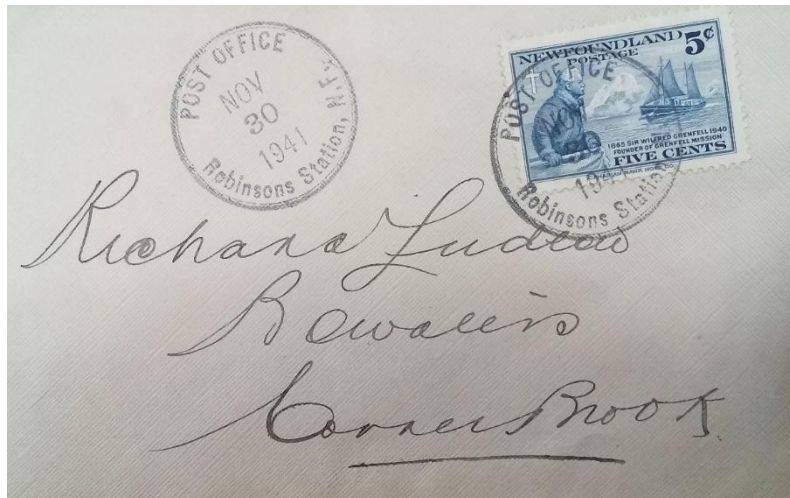 POST OFFICE
NOV
30
1941
Robinsons Station, N.F.
NEWFOUNDLAND 5¢
POSTAGE
1865 SIR WILFRED GRENFELL 1940
FOUNDER OF GRENFELL MISSION
FIVE CENTS
POST OFFICE
NOV
Robinsons Station
Richard Ludlow
Bowaters
Corner Brook